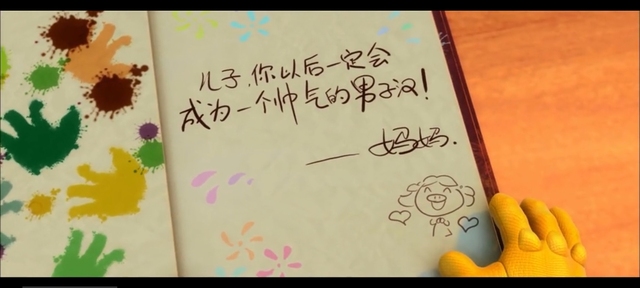 儿子,你以后一定会
成为一个帅气的男子汉!
——妈妈.